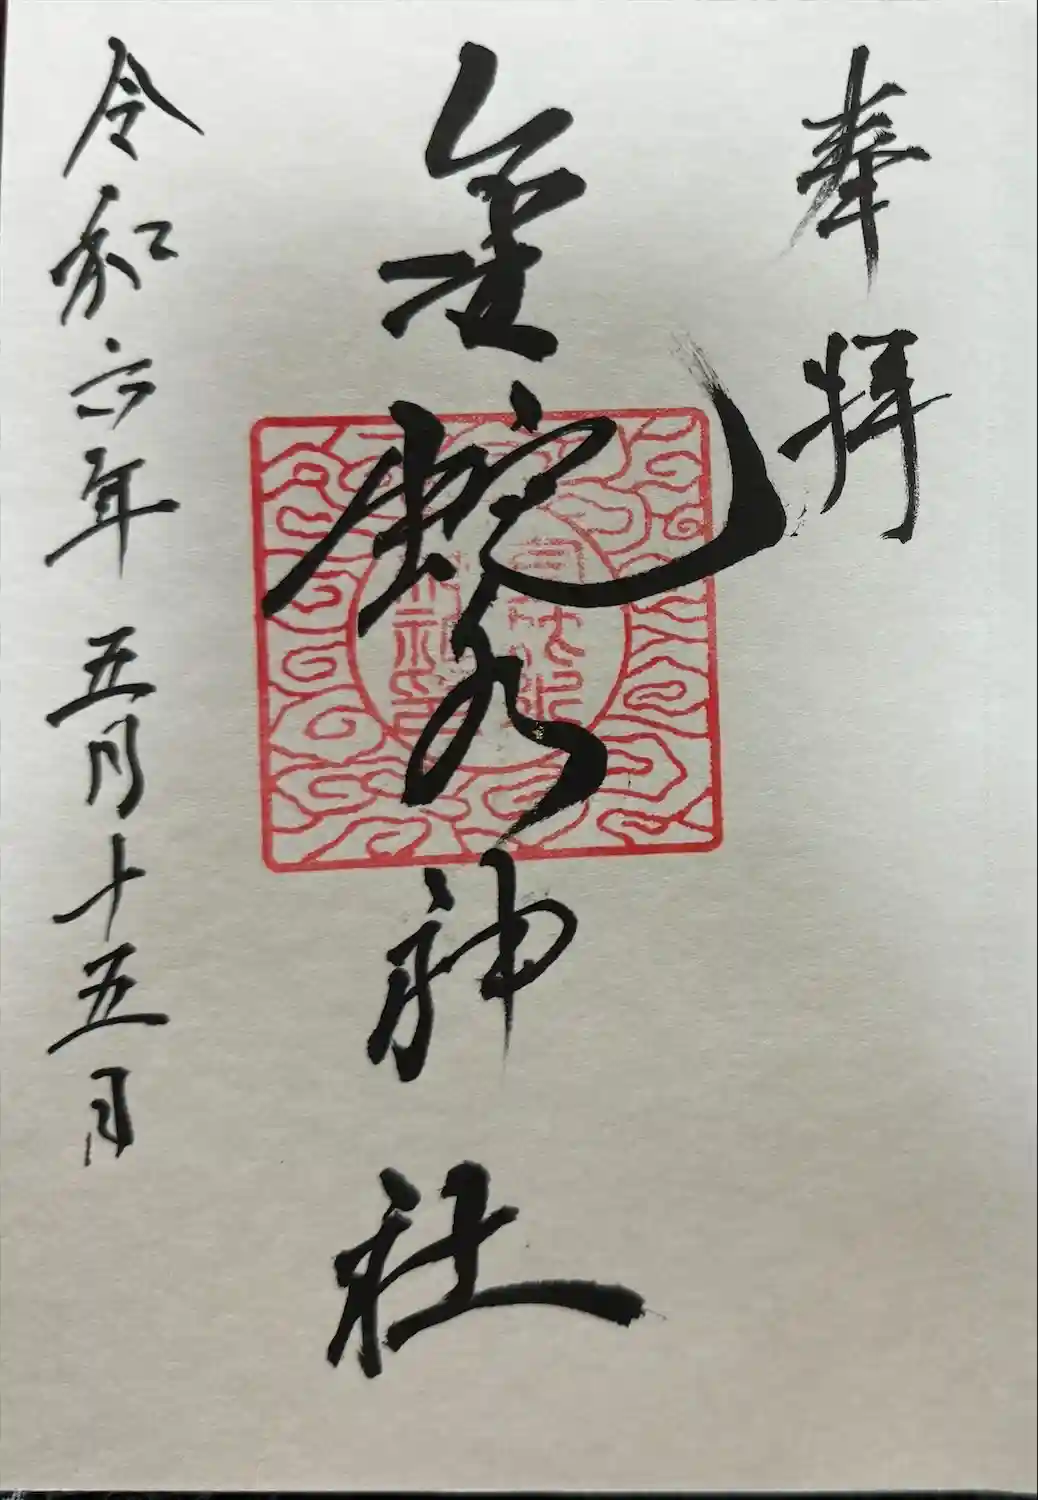 奉拝
金蛇水神社
令和六年五月十五日